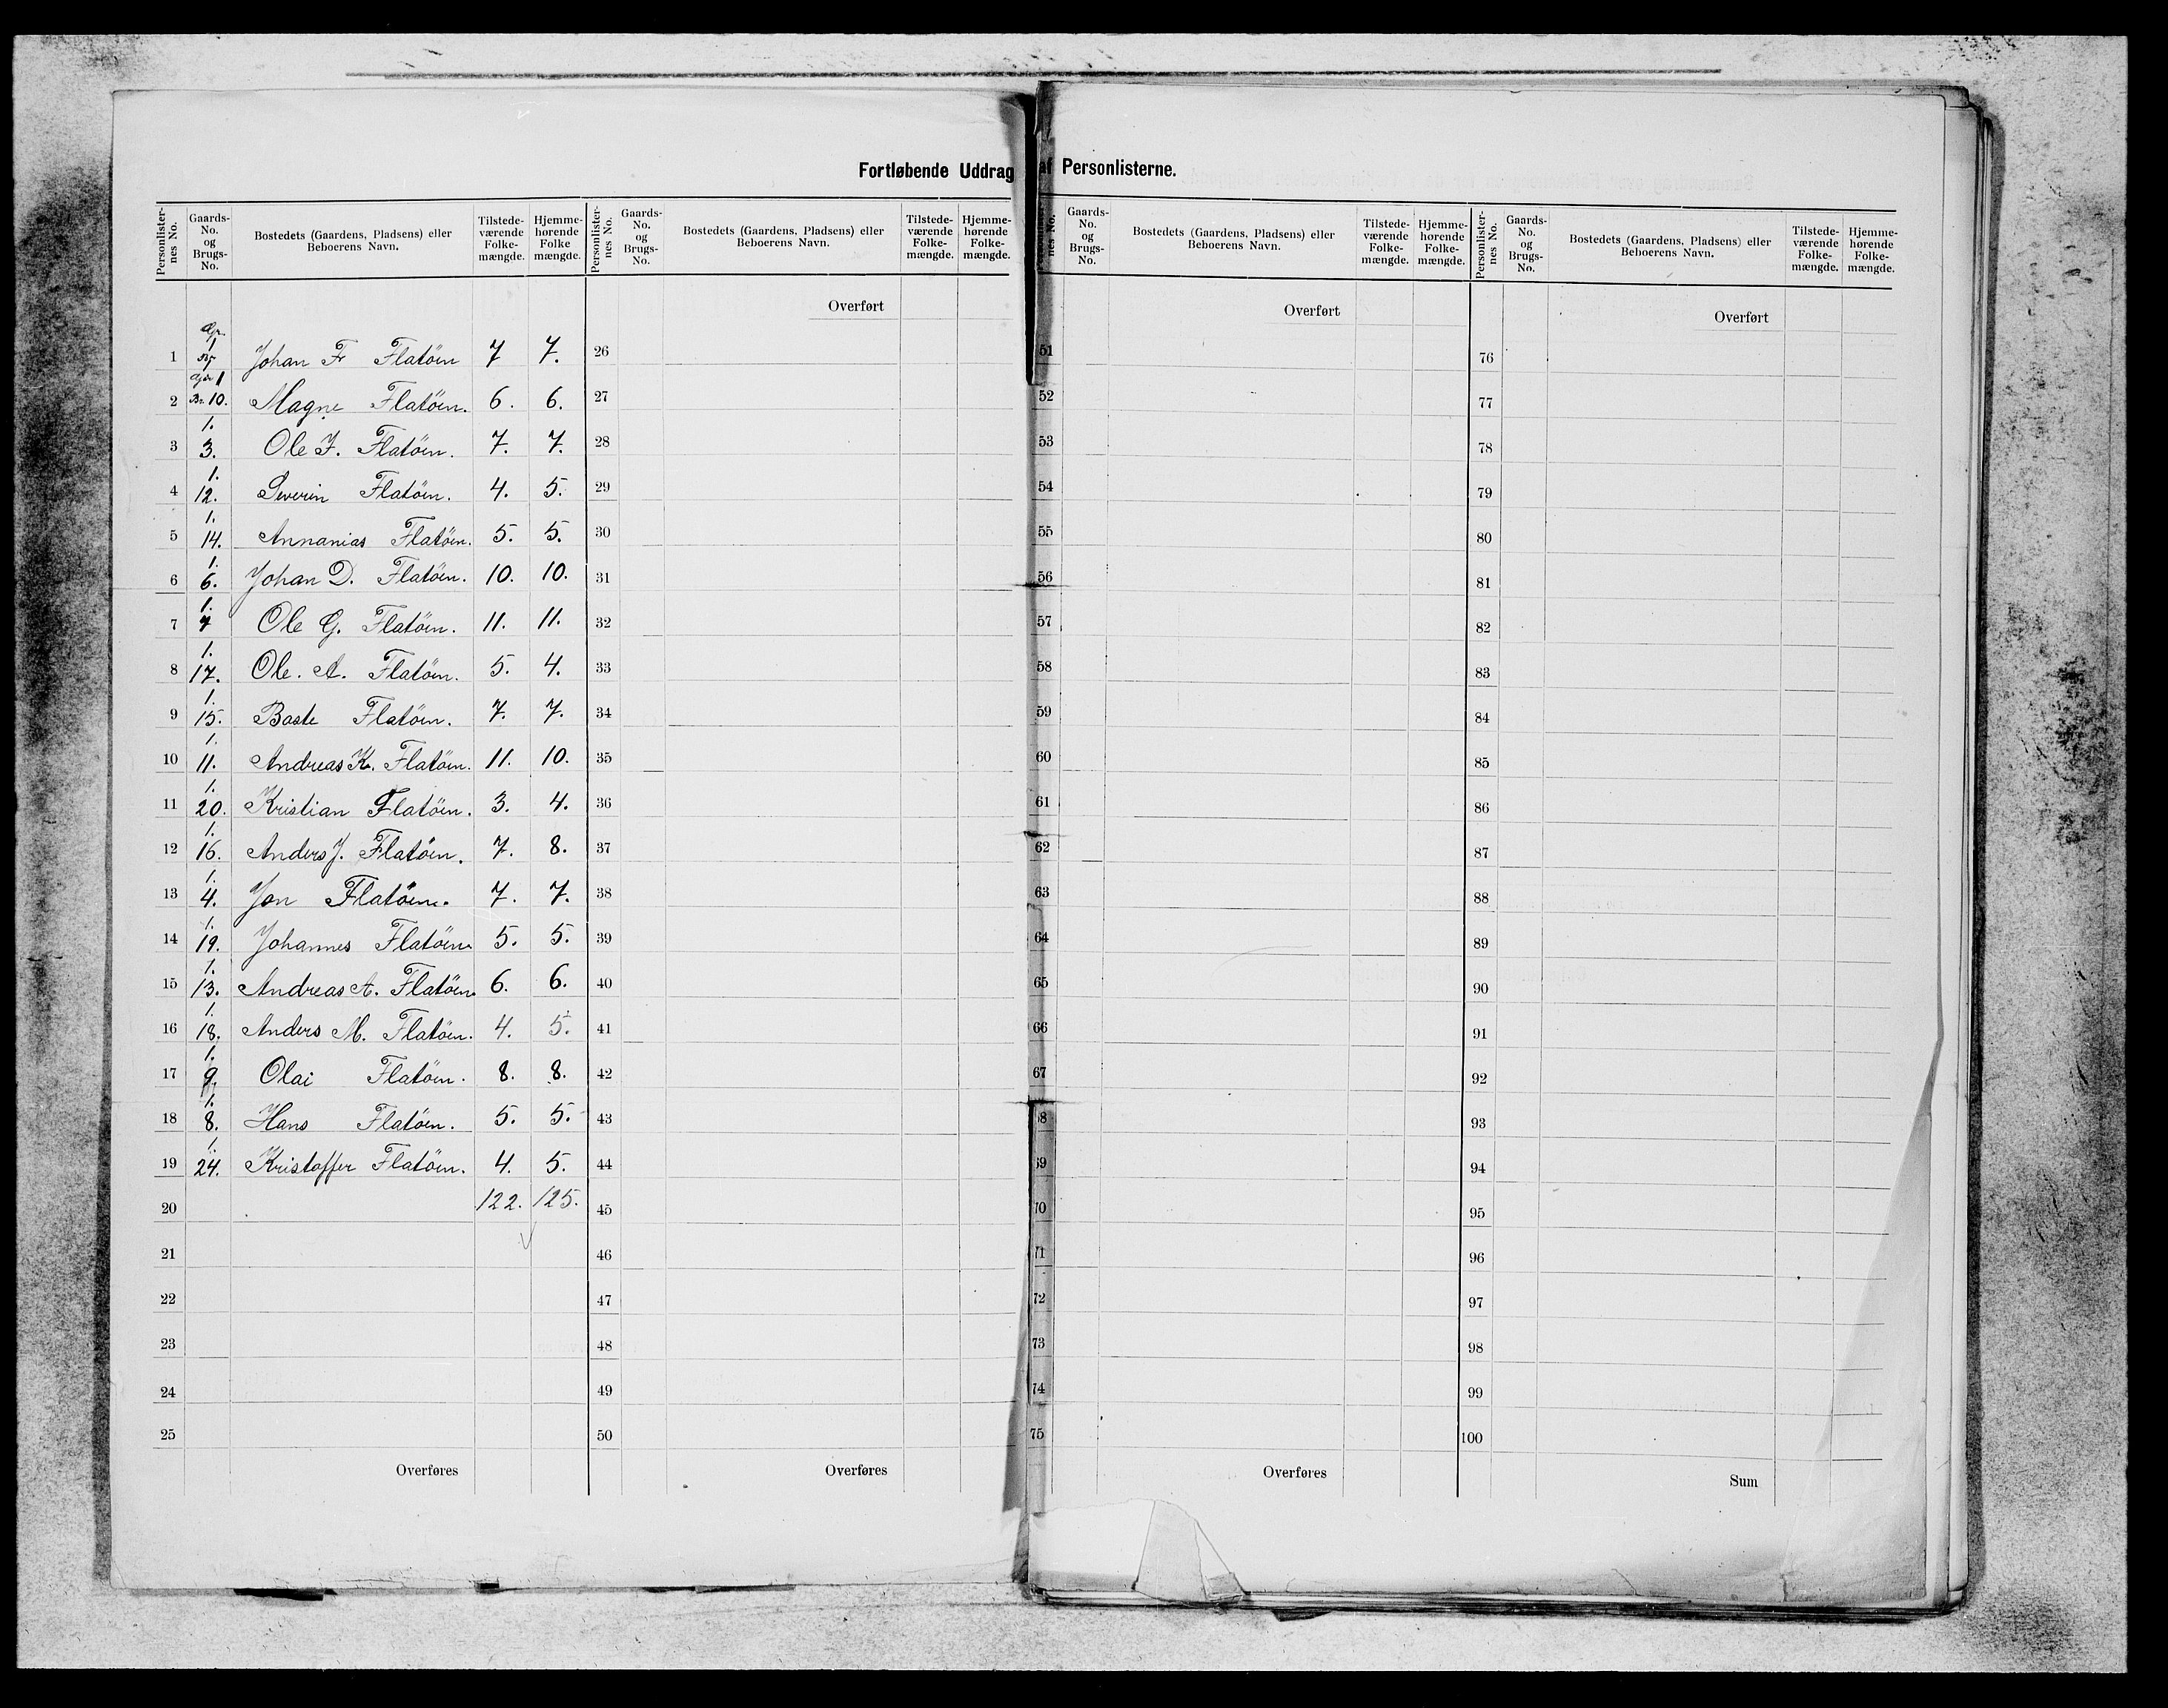 Fortløbende Uddrag af Personlisterne.
Personlister-nes No. | Gaards-No. og Brugs-No. | Bostedets (Gaardens, Pladsens) eller Beboerens Navn. | Tilstede-værende Folke-mængde. | Hjemme-hørende Folke mængde.
Personlister-nes No. | Gaards-No. og Brugs-No. | Bostedets (Gaardens, Pladsens) eller Beboerens Navn. | Tilstede-værende Folke-mængde. | Hjemme-hørende Folke-mængde.
nes No. | Gaards-No. og Brugs-No. | Bostedets (Gaardens, Pladsens) eller Beboerens Navn. | Tilstede-værende Folke-mængde. | Hjemme-hørende Folke-mængde.
Personlister-nes No. | Gaards-No. og Brugs-No. | Bostedets (Gaardens, Pladsens) eller Beboerens Navn. | Tilstede-værende Folke-mængde. | Hjemme-hørende Folke-mængde.
Overført Overført Overført
1 Gr. 1 Johan Fr Flatöen 7 7. 26 51 76
2 1 Br. 10. Magne Flatöen. 6. 6. 27 52 77
3 1. 3. Ole J. Flatöen. 7. 7. 28 53 78
4 1. 12. Severin Flatöen. 4. 5. 29 54 79
5 1. 14. Annanias Flatöen. 5. 5. 30 55 80
6 1. 6. Johan D. Flatöen. 10. 10. 31 56 81
7 1. 7 Ole G. Flatöen. 11. 11. 32 57 82
8 1. 17. Ole. A. Flatöen. 5. 4. 33 58 83
9 1. 15. Baste Flatöen. 7. 7. 34 59 84
10 1. 11. Andreas K. Flatöen. 11. 10. 35 60 85
11 1. 20. Kristian Flatöen. 3. 4. 36 61 86
12 1. 16. Anders J. Flatöen. 7. 8. 37 62 87
13 1. 4. Jon Flatöen. 7. 7. 38 63 88
14 1. 19. Johannes Flatöen. 5. 5. 39 64 89
15 1. 13. Andreas A. Flatöen. 6. 6. 40 65 90
16 1. 18. Anders M. Flatöen. 4. 5. 41 66 91
17 1. 9. Olai Flatöen. 8. 8. 42 67 92
18 1. 8. Hans Flatöen. 5. 5. 43 68 93
19 1. 24. Kristoffer Flatöen. 4. 5. 44 69 94
20 122. 125. 45 70 95
21 46 71 96
22 47 72 97
23 48 73 98
24 49 74 99
25 50 75 100
Overføres Overføres Overføres Sum